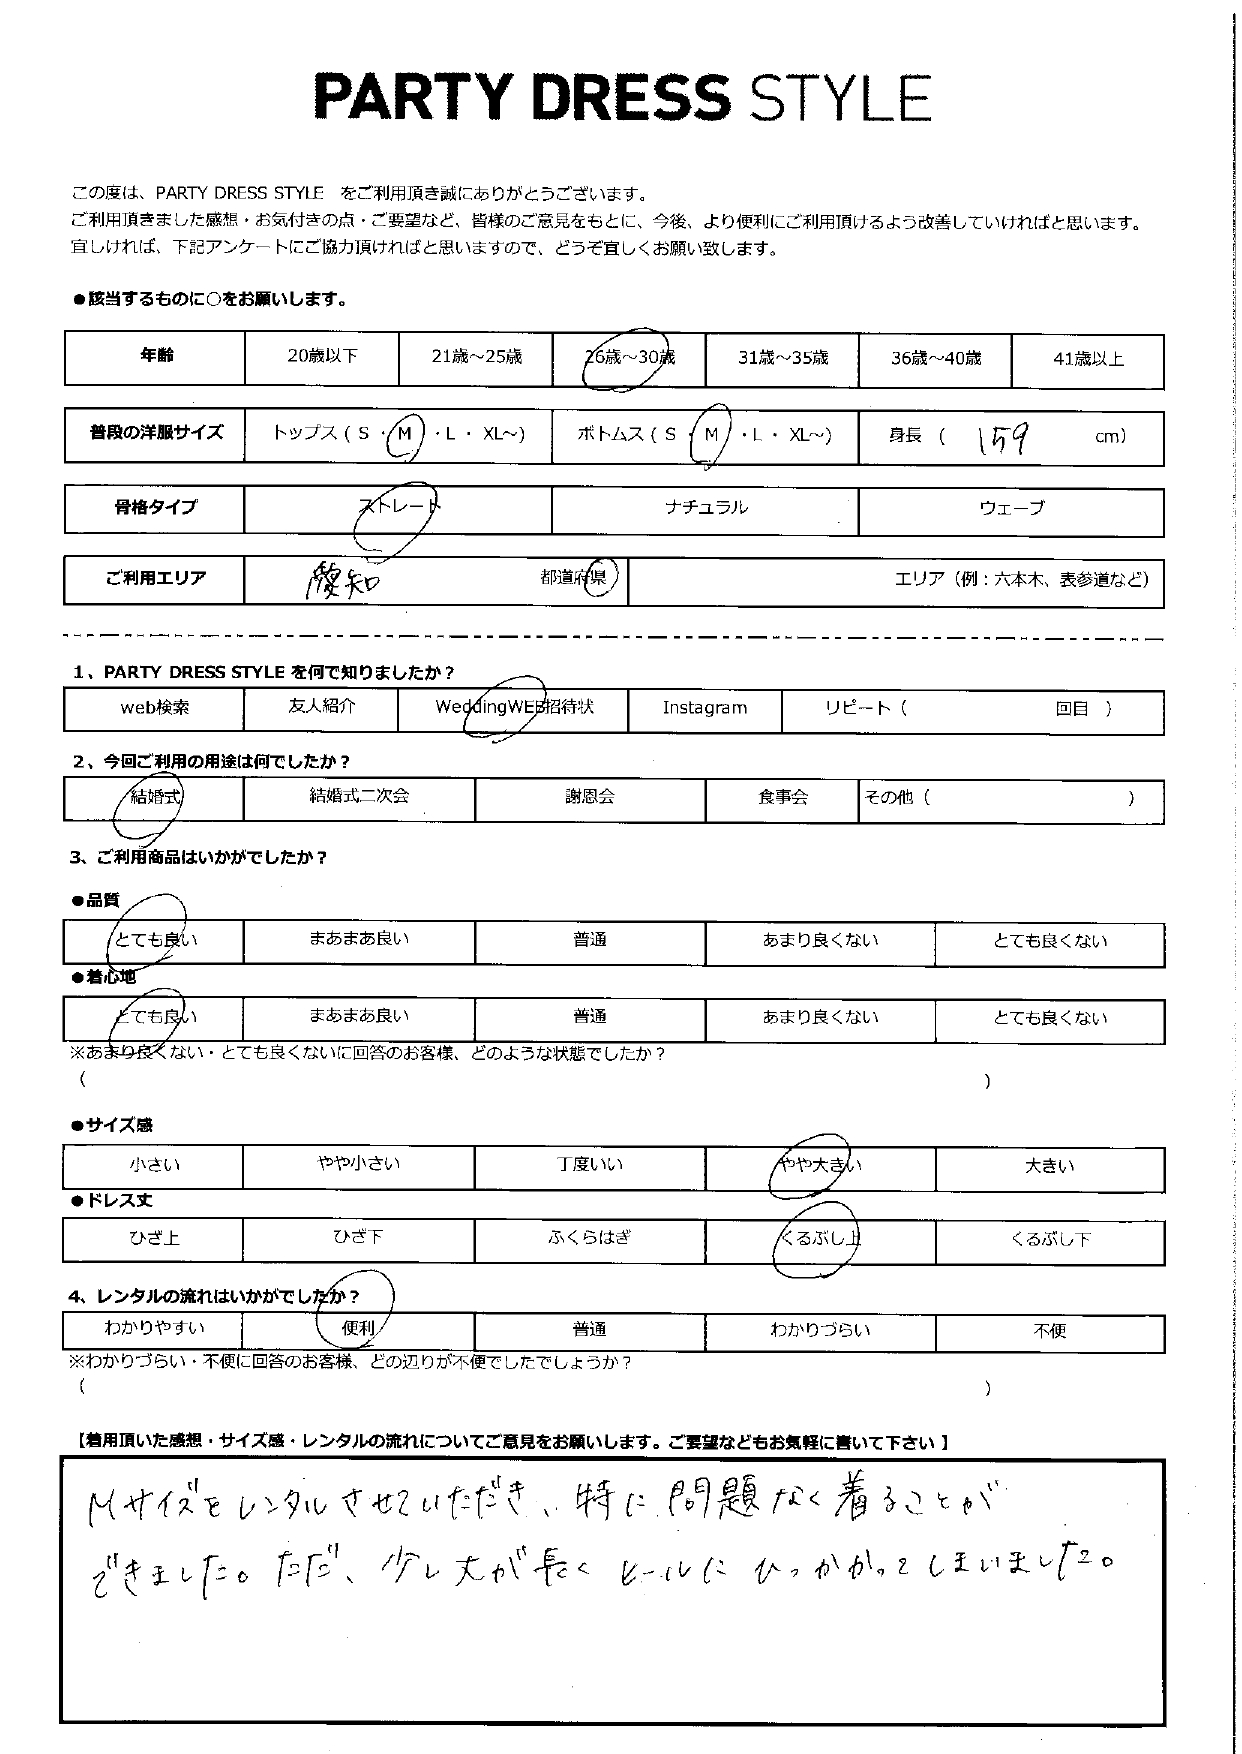 PARTY DRESS STYLE
この度は、PARTY DRESS STYLE をご利用頂き誠にありがとうございます。
ご利用頂きました感想・お気付きの点・ご要望など、皆様のご意見をもとに、今後、より便利にご利用頂けるよう改善していければと思います。
宜しければ、下記アンケートにご協力頂ければと思いますので、どうぞ宜しくお願い致します。
●該当するものに○をお願いします。
年齢 20歳以下 21歳～25歳 26歳～30歳 31歳～35歳 36歳～40歳 41歳以上
普段の洋服サイズ トップス ( S ・ M ・ L ・ XL～) ボトムス ( S ・ M ・ L ・ XL～) 身長 ( 159 cm)
骨格タイプ ストレート ナチュラル ウェーブ
ご利用エリア 愛知 都道府県 エリア（例：六本木、表参道など）
1、PARTY DRESS STYLE を何で知りましたか？
web検索 友人紹介 WeddingWEB招待状 Instagram リピート（ 回目 ）
2、今回ご利用の用途は何でしたか？
結婚式 結婚式二次会 謝恩会 食事会 その他（ ）
3、ご利用商品はいかがでしたか？
●品質
とても良い まあまあ良い 普通 あまり良くない とても良くない
●着心地
とても良い まあまあ良い 普通 あまり良くない とても良くない
※あまり良くない・とても良くないに回答のお客様、どのような状態でしたか？
（ ）
●サイズ感
小さい やや小さい 丁度いい やや大きい 大きい
●ドレス丈
ひざ上 ひざ下 ふくらはぎ くるぶし上 くるぶし下
4、レンタルの流れはいかがでしたか？
わかりやすい 便利 普通 わかりづらい 不便
※わかりづらい・不便に回答のお客様、どの辺りが不便でしたでしょうか？
（ ）
【着用頂いた感想・サイズ感・レンタルの流れについてご意見をお願いします。ご要望などもお気軽に書いて下さい】
Mサイズをレンタルさせていただき、特に問題なく着ることが
できました。ただ、少し丈が長くヒールにひっかかってしまいました。